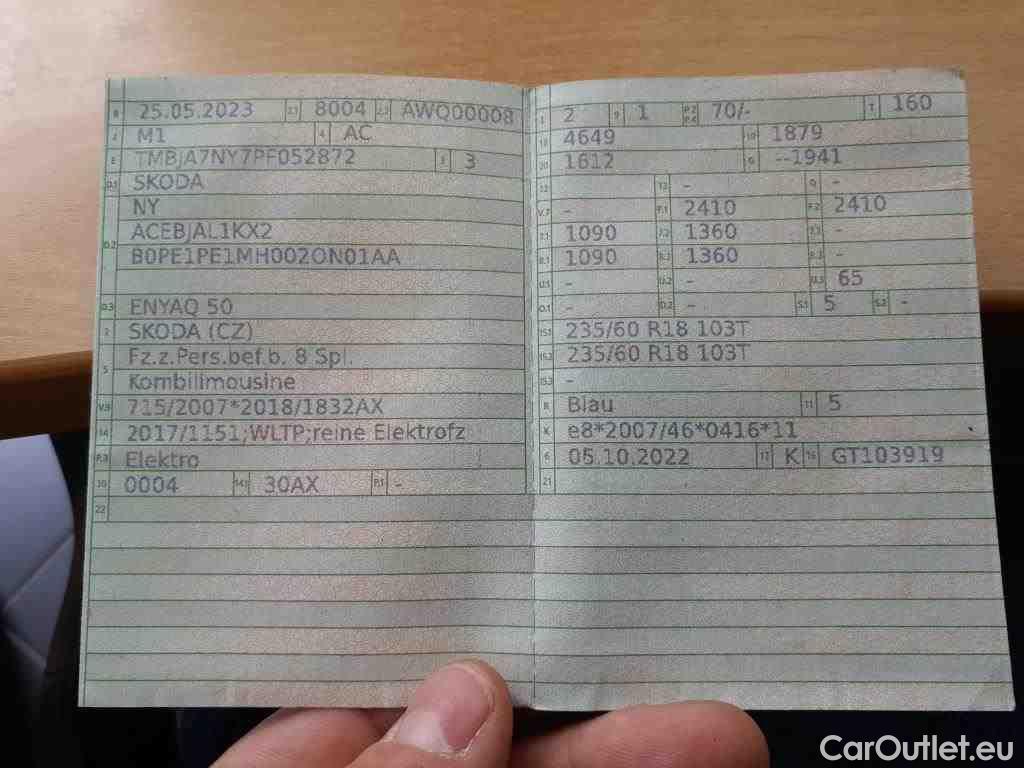 B 25.05.2023 2.1 8004 2.2 AWQ00008
J M1 4 AC
E TMBJA7NY7PF052872 3 3
D.1 SKODA
NY
D.2 ACEBJAL1KX2
B0PE1PE1MH002ON01AA
D.3 ENYAQ 50
2 SKODA (CZ)
5 Fz.z.Pers.bef.b. 8 Spl.
Kombilimousine
V.9 715/2007*2018/1832AX
14 2017/1151;WLTP;reine Elektrofz
P.3 Elektro
10 0004 14.1 30AX P.1 -
22
L 2 9 1 P.2 P.4 70/- T 160
18 4649 19 1879
20 1612 G --1941
12 - 13 - Q -
V.7 - F.1 2410 F.2 2410
7.1 1090 7.2 1360 7.3 -
8.1 1090 8.2 1360 8.3 -
U.1 - U.2 - U.3 65
O.1 - O.2 - S.1 5 S.2 -
15.1 235/60 R18 103T
15.2 235/60 R18 103T
15.3 -
R Blau 11 5
K e8*2007/46*0416*11
6 05.10.2022 17 K 16 GT103919
21
CarOutlet.eu